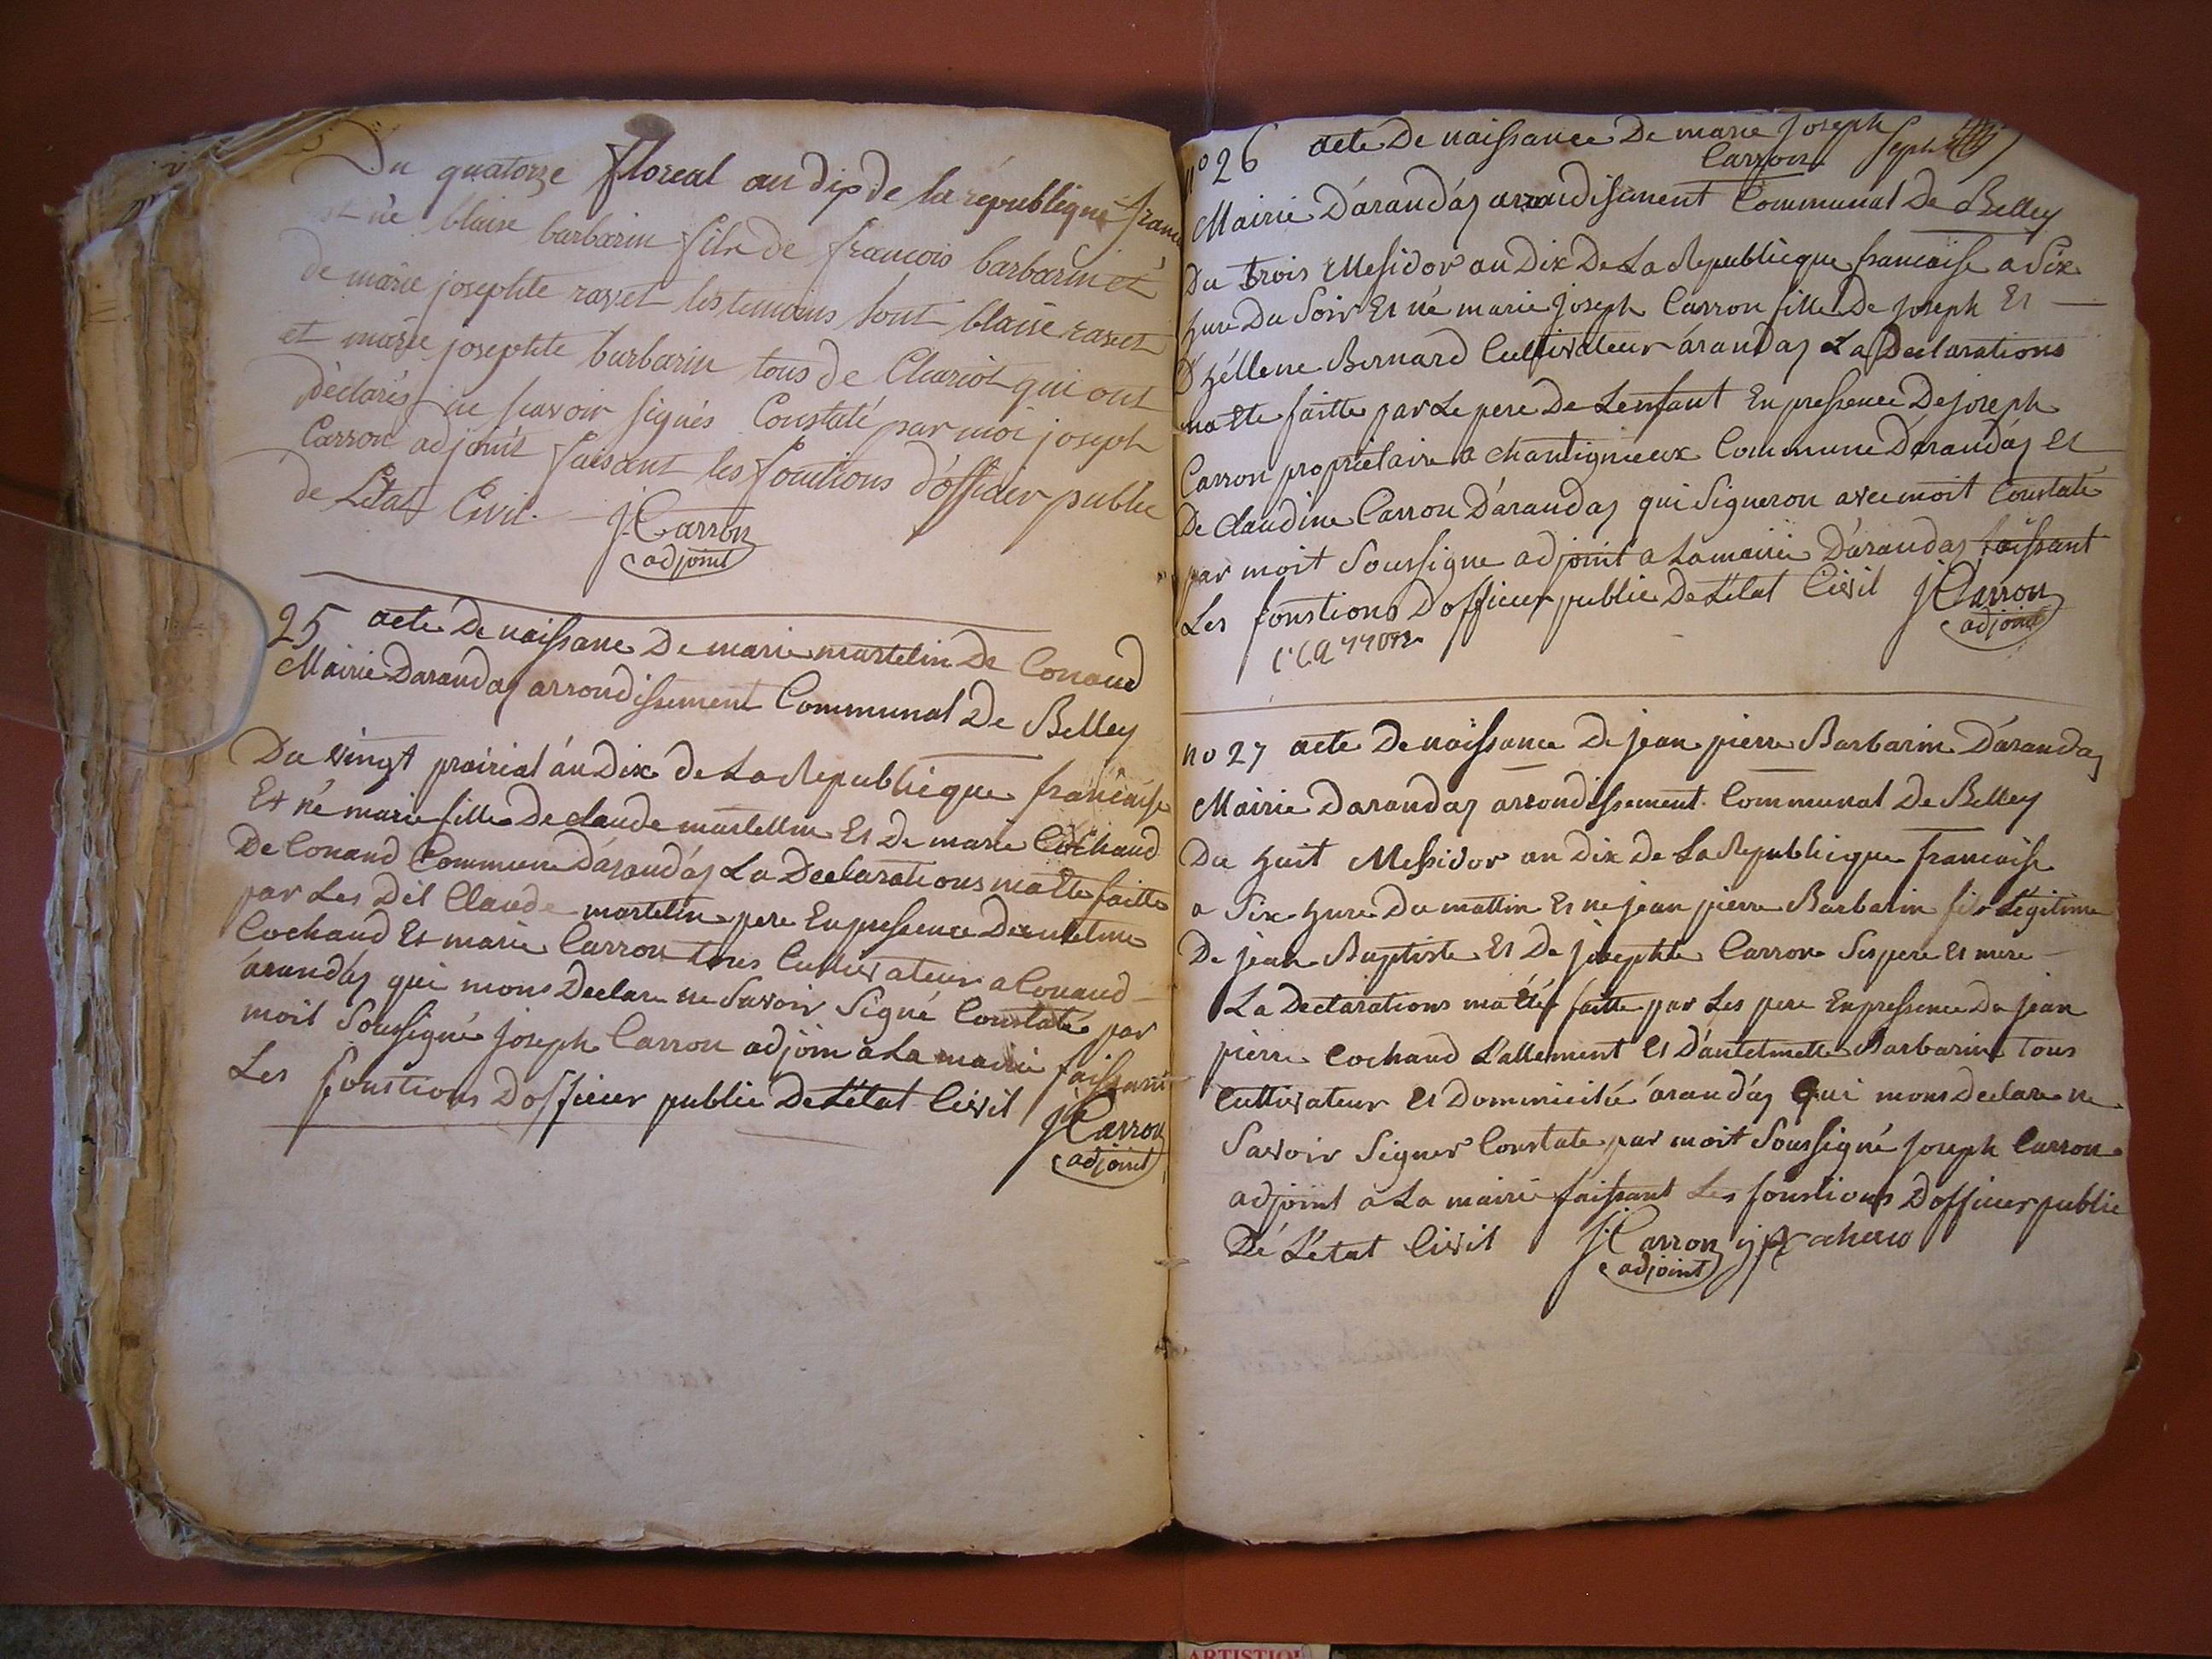 Du quatorze floreal an dix de la république
est né blaise barbarin fils de francois barbarin et
de marie josephte ravet les temoins sont blaise ravet
et marie josephte barbarin tous de Chariot qui ont
déclarés ne scavoir signés Constaté par moi joseph
Carron adjoint faisant les fonctions d'officier public
de L'etat Civil.
J Carron
adjoint
25 acte De naissance De marie martelin De Conand
Mairie Darandas arrondissement Communal De Belley
Du vingt prairial án Dix de La Republicque francaise
Et né marie fille De claude martellin Et De marie Cochaud
De Conand Commune D'arandás La Declarations matte faitte
par Les Dit Claude martelin pere En pressence Dantelme
Cochaud Et marie Carron tous Cultivateur a Conand
arandás qui mons Declare ne Savoir Signé Constaté par
moit Soussigné joseph Carron adjoin a La mairie faissant
Les fonstions D'officier public De L'état Civil
J Carron
adjoint
no 26 acte De naissance De marie Joseph
Carron
Mairie D'arandás arrondisment Communal De Belley
Du trois Mesidor an Dix De La Republicque francaise a Six
hure Du Soir Et né marie joseph Carron fille De Joseph Et
D'héllene Bernard Cultivateur árandas La Declarations
matte faitte par Le pere De Lenfant En pressence De joseph
Carron propriétaire a chantignieux Commune Darandás Et
De Claudine Carron D'arandas qui Signeron avec moit Constaté
par moit Soussigne adjoint a La mairie D'arandas faissant
Les fonstions D officier public De L'état Civil J Carron
adjoint
Carron
no 27 acte De naissance De jean pierre Barbarin D'arandas
Mairie Darandas arrondissement Communal De Belley
Du huit Messidor an Dix De La Republicque francaise
a Six hure Du mattin Et ne jean pierre Barbarin fils Légitime
De jean Baptiste Et De josephte Carron Ses pere Et mere
La Declarations matté faitte par Les pere En pressence De jean
pierre Cochaud L'allement Et D'antelmette Barbarin Tous
Cultivateur Et Dominicilié árandás Qui mons Declare ne
Savoir Signer Constate par moit Soussigné joseph Carron
adjoint a La mairie faissant Les fonstions D officier public
De L'état Civil J Carron
adjoint